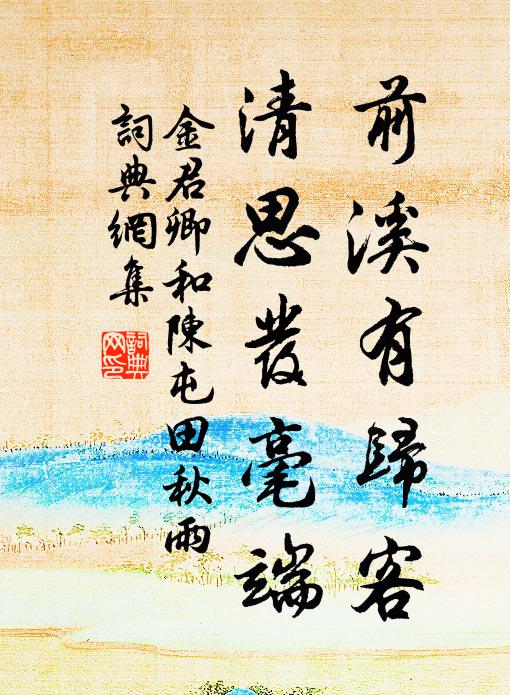 前溪有歸客
清思發毫端
金君卿和陳屯田秋雨
詞典網集